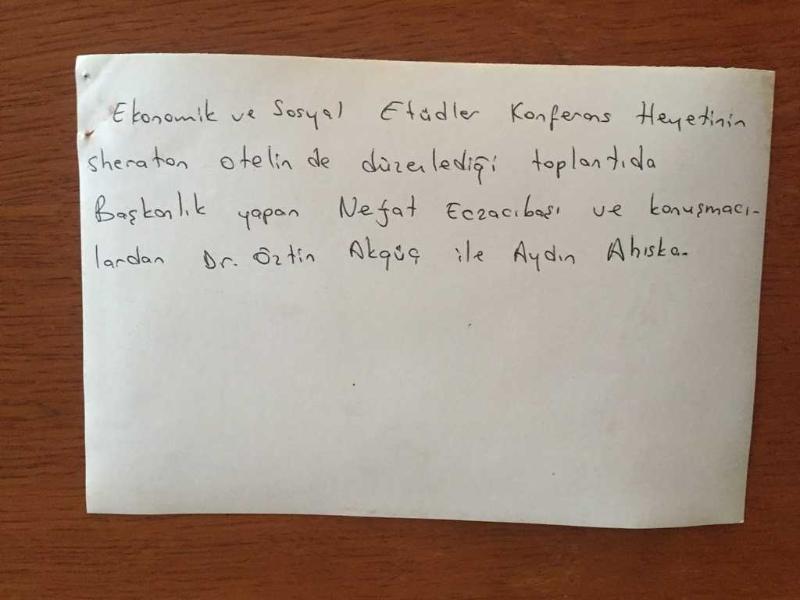 Ekonomik ve Sosyal Etüdler Konferans Heyetinin
sheraton otelin de düzenlediği toplantıda
Başkanlık yapan Nejat Eczacıbaşı ve konuşmacı-
lardan Dr. Öztin Akgüç ile Aydın Ahıska.